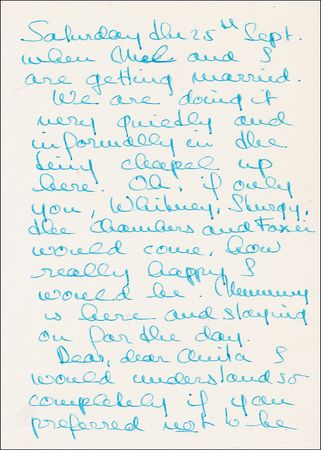 Saturday the 25th Sept.
when Mel and I
are getting married.
We are doing it
very quietly and
informally in the
tiny chapel up
here. Oh, if only
you, Whitney, Sturgy,
the Chambers and Foxie
would come, how
really happy I
would be.
is here and staying
on for the day.
Dear, dear Anita I
would understand so
completely if you
preferred not to be